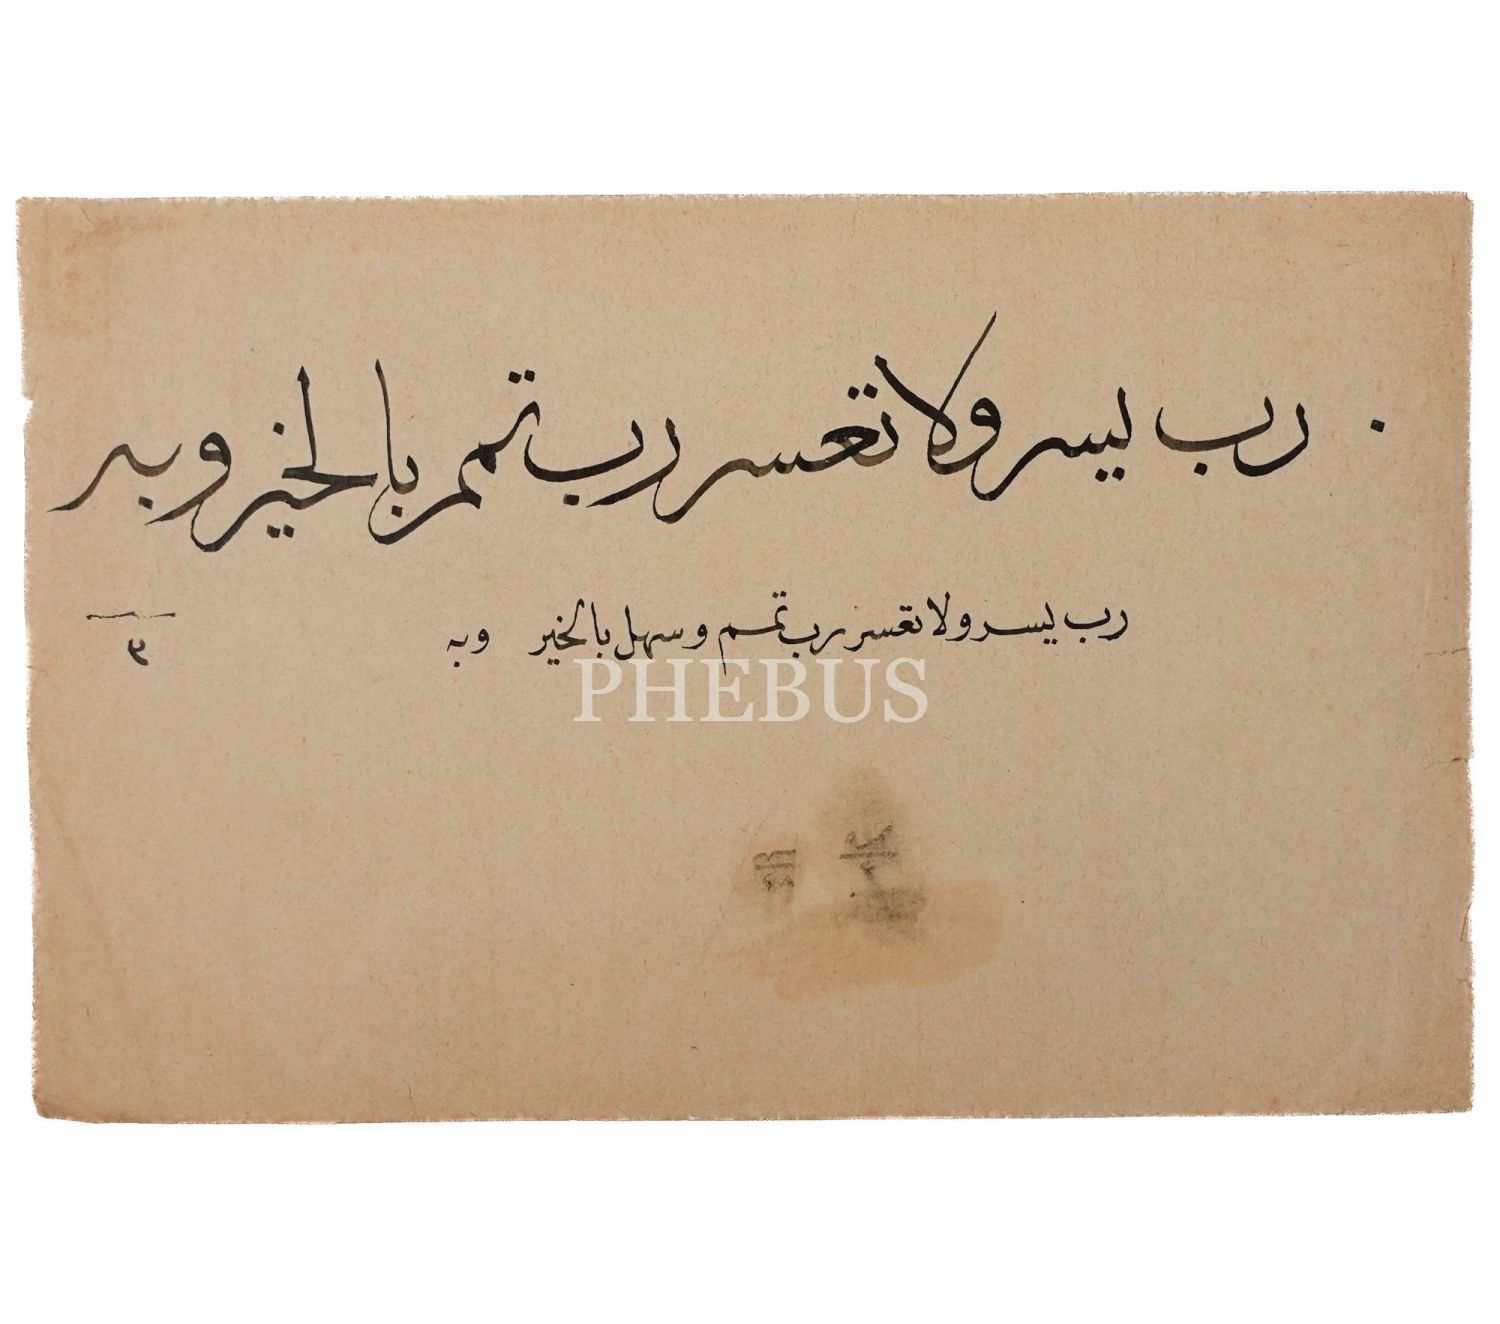 رب يسر ولا تعسر رب تمم بالخير وبه
رب يسر ولا تعسر رب تمم وسهل بالخير وبه
٣
PHEBUS